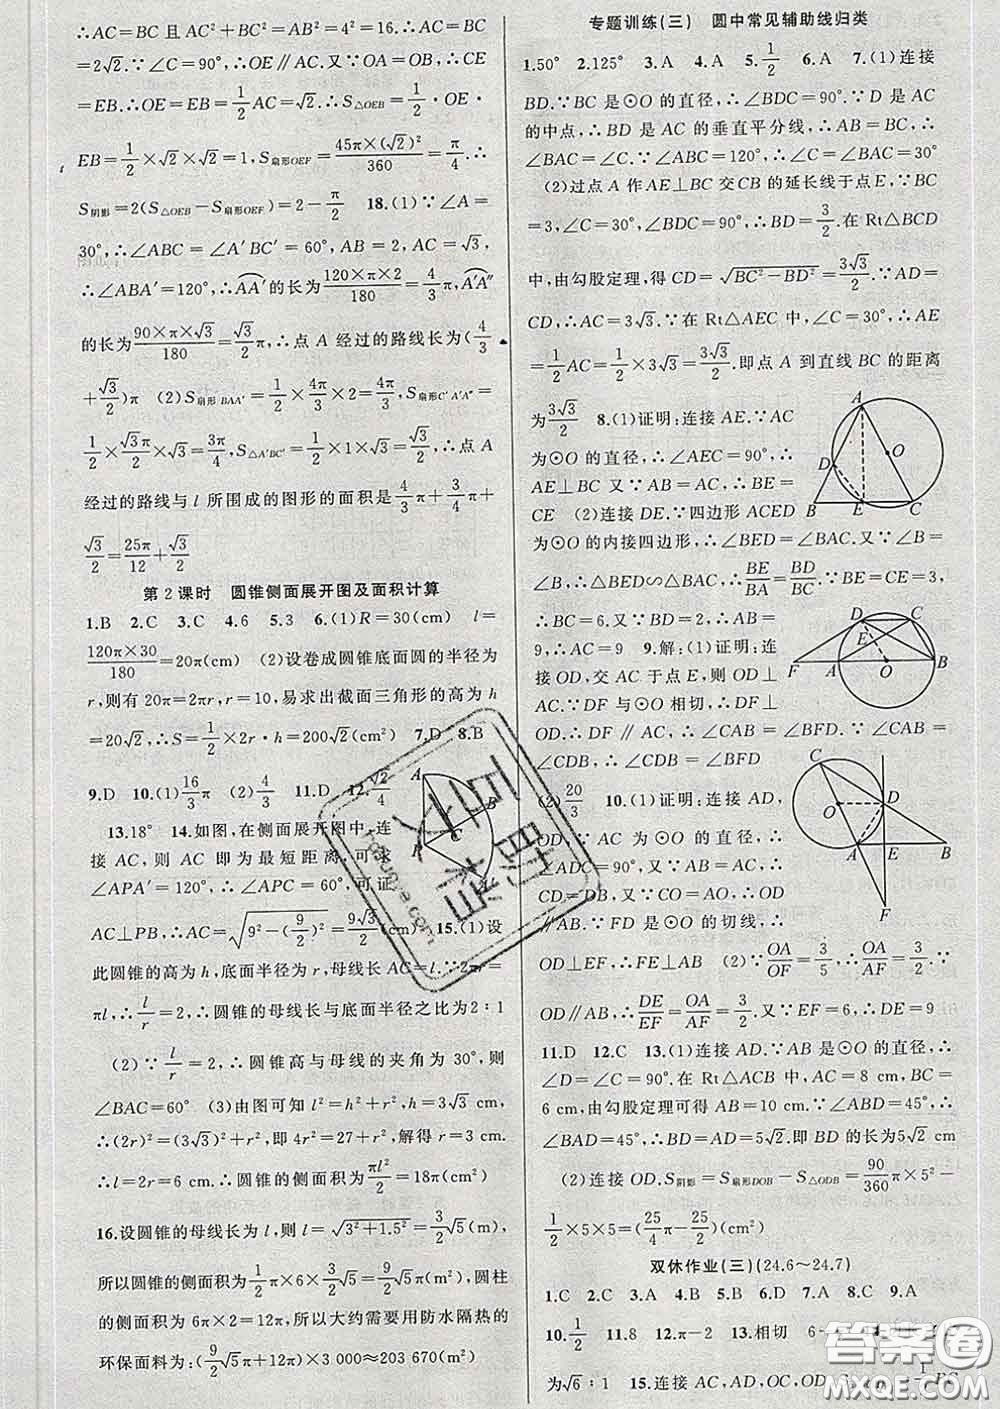 ∴AC=BC 且 AC²+BC²=AB²=4²=16.∴AC=
BC=2√2.∵∠C=90°,∴OE∥AC.又∵OA=
OB,∴OE=BE=1/2AC=√2.∴S△OEB=1/2·OE·
EB=1/2×√2×√2=1,S扇形OEF=45π×(√2)²/360=π/4.∴
S阴影=2(S△OEB−S扇形OEF)=2−π/2 18.(1)∵∠A=
30°,∴∠ABC=∠A′BC′=60°,AB=2,AC=√3,
∴∠ABA′=120°,∴AA′的长为120×π×2/180=4/3π,A′A″
的长为90×π×√3/180=√3/2π,∴点 A 经过的路线长为(4/3
+√3/2)π (2)S扇形BAA′=1/2×4π/3×2=4π/3,S扇形C′A′A″=
1/2×√3π/2×√3=3π/4,S△A′BC′=1/2×1×√3=√3/2,∴点 A
经过的路线与 l 所围成的图形的面积是4/3π+3/4π+
√3/2=25π/12+√3/2
第 2 课时 圆锥侧面展开图及面积计算
1.B 2.C 3.C 4.6 5.3 6.(1)R=30(cm) l=
120π×30/180=20π(cm) (2)设卷成圆锥底面圆的半径为
r,则有 20π=2πr,r=10,易求出截面三角形的高为 h
=20√2,∴S=1/2×2r·h=200√2(cm²) 7.D 8.B
9.D 10.(1)16/3π (2)4/3 11.D 12.√2/4
13.18° 14.如图,在侧面展开图中,连
接 AC,则 AC 即为最短距离,可求
∠APA′=120°,∴∠APC=60°,可证
AC⊥PB,∴AC=√(9²−(9/2)²)=9√3/2(cm) 15.(1)设
此圆锥的高为 h,底面半径为 r,母线长 AC=l.∵2πr=
πl,∴l/r=2,∴圆锥的母线长与底面半径之比为 2∶1
(2)∵l/r=2,∴圆锥高与母线的夹角为 30°,则
∠BAC=60° (3)由图可知 l²=h²+r²,h=3√3 cm,
∴(2r)²=(3√3)²+r²,即 4r²=27+r²,解得 r=3 cm,
∴l=2r=6 cm,∴圆锥的侧面积为πl²/2=18π(cm²)
16.设圆锥的母线长为 l,则 l=√(3²+1.5²)=3/2√5(m),
所以圆锥的侧面积为1/2π×6×3/2√5=9/2√5π(m²),圆柱
的侧面积为 6π×2=12π(m²),所以大约需要用防水隔热的
环保面料为:(9/2√5π+12π)×3 000≈203 670(m²)
专题训练(三) 圆中常见辅助线归类
1.50° 2.125° 3.A 4.A 5.1/2 6.A 7.(1)连接
BD.∵BC 是⊙O 的直径,∴∠BDC=90°.∵D 是 AC
的中点,∴BD 是 AC 的垂直平分线,∴AB=BC,∴
∠BAC=∠C.∵∠ABC=120°,∴∠C=∠BAC=30°
(2)过点 A 作 AE⊥BC 交 CB 的延长线于点 E,∵BC
=3,∠C=30°,∠BDC=90°,∴BD=3/2.在 Rt△BCD
中,由勾股定理,得 CD=√(BC²−BD²)=3√3/2.∵AD=
CD,∴AC=3√3.∵在 Rt△AEC 中,∠C=30°,∴AE
=1/2AC=1/2×3√3=3√3/2.即点 A 到直线 BC 的距离
为3√3/2 8.(1)证明:连接 AE.∵AC
为⊙O 的直径,∴∠AEC=90°,∴
AE⊥BC 又∵AB=AC,∴BE=
CE (2)连接 DE.∵四边形 ACED
为⊙O 的内接四边形,∴∠BED=∠BAC.又∵∠B=
∠B,∴△BED∽△BAC,∴BE/BA=BD/BC.∵BE=CE=3,
∴BC=6.又∵BD=2,∴AB=
9,∴AC=9 9.解:(1)证明:连
接 OD,交 AC 于点 E,则 OD⊥
AC.∵DF 与⊙O 相切,∴DF⊥
OD.∴DF∥AC,∴∠CAB=∠BFD.∵∠CAB=
∠CDB,∴∠CDB=∠BFD
(2)20/3 10.(1)证明:连接 AD,
OD.∵AC 为⊙O 的直径,∴
∠ADC=90°.又∵AC=AB,∴
CD=DB,又 CO=AO,∴OD
∥AB.∵FD 是⊙O 的切线,∴
OD⊥EF,∴FE⊥AB (2)∵OA/OF=3/5,∴OA/AF=3/2.∵
OD∥AB,∴DE/EF=OA/AF=3/2.又∵EF=6,∴DE=9
11.D 12.C 13.(1)连接 AD.∵AB 是⊙O 的直径,∴
∠D=∠C=90°.在 Rt△ACB 中,AC=8 cm,BC=
6 cm,由勾股定理可得 AB=10 cm.又∵∠ACD=45°,∴
∠BAD=45°,∴BD=AD=5√2.即 BD 的长为5√2 cm
(2)连接 OD.S阴影=S扇形DOB−S△ODB=90/360π×5²−
1/2×5×5=(25/4π−25/2)(cm²)
双休作业(三)(24.6~24.7)
1.C 2.C 3.A 4.B 5.B 6.D 7.A 8.C 9.A
10.1/2 11.8 12.π−2 13.相切
为√6∶1 15.连接 AC,AD,OC,OD
答案圈